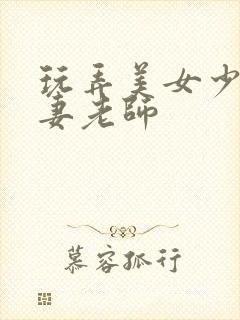 玩弄美女少
妻老師
慕容孤行